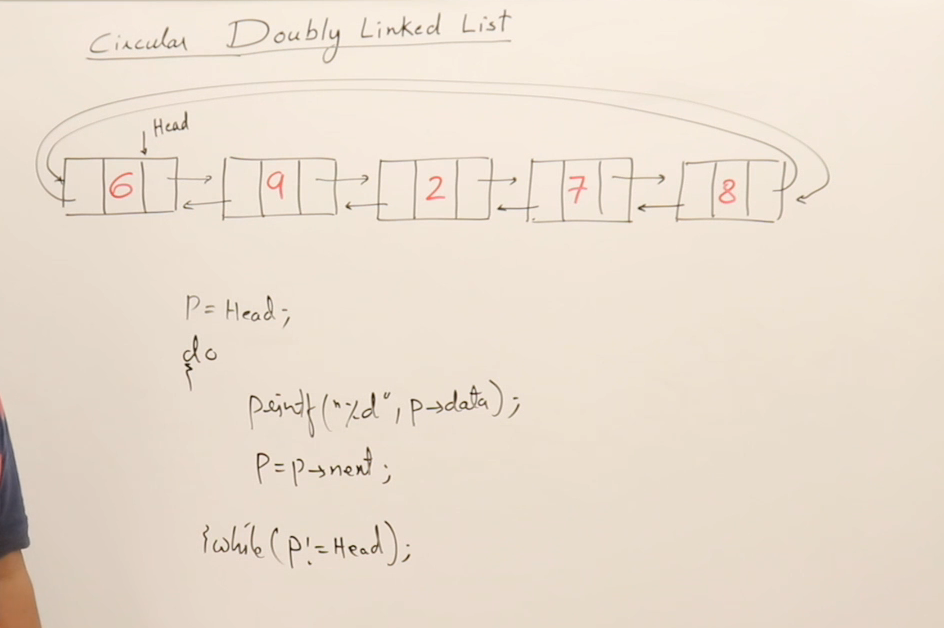 Circular Doubly Linked List
Head
6 9 2 7 8
P = Head;
do
{
printf("%d", p→data);
P = p→next;
}while(p!=Head);